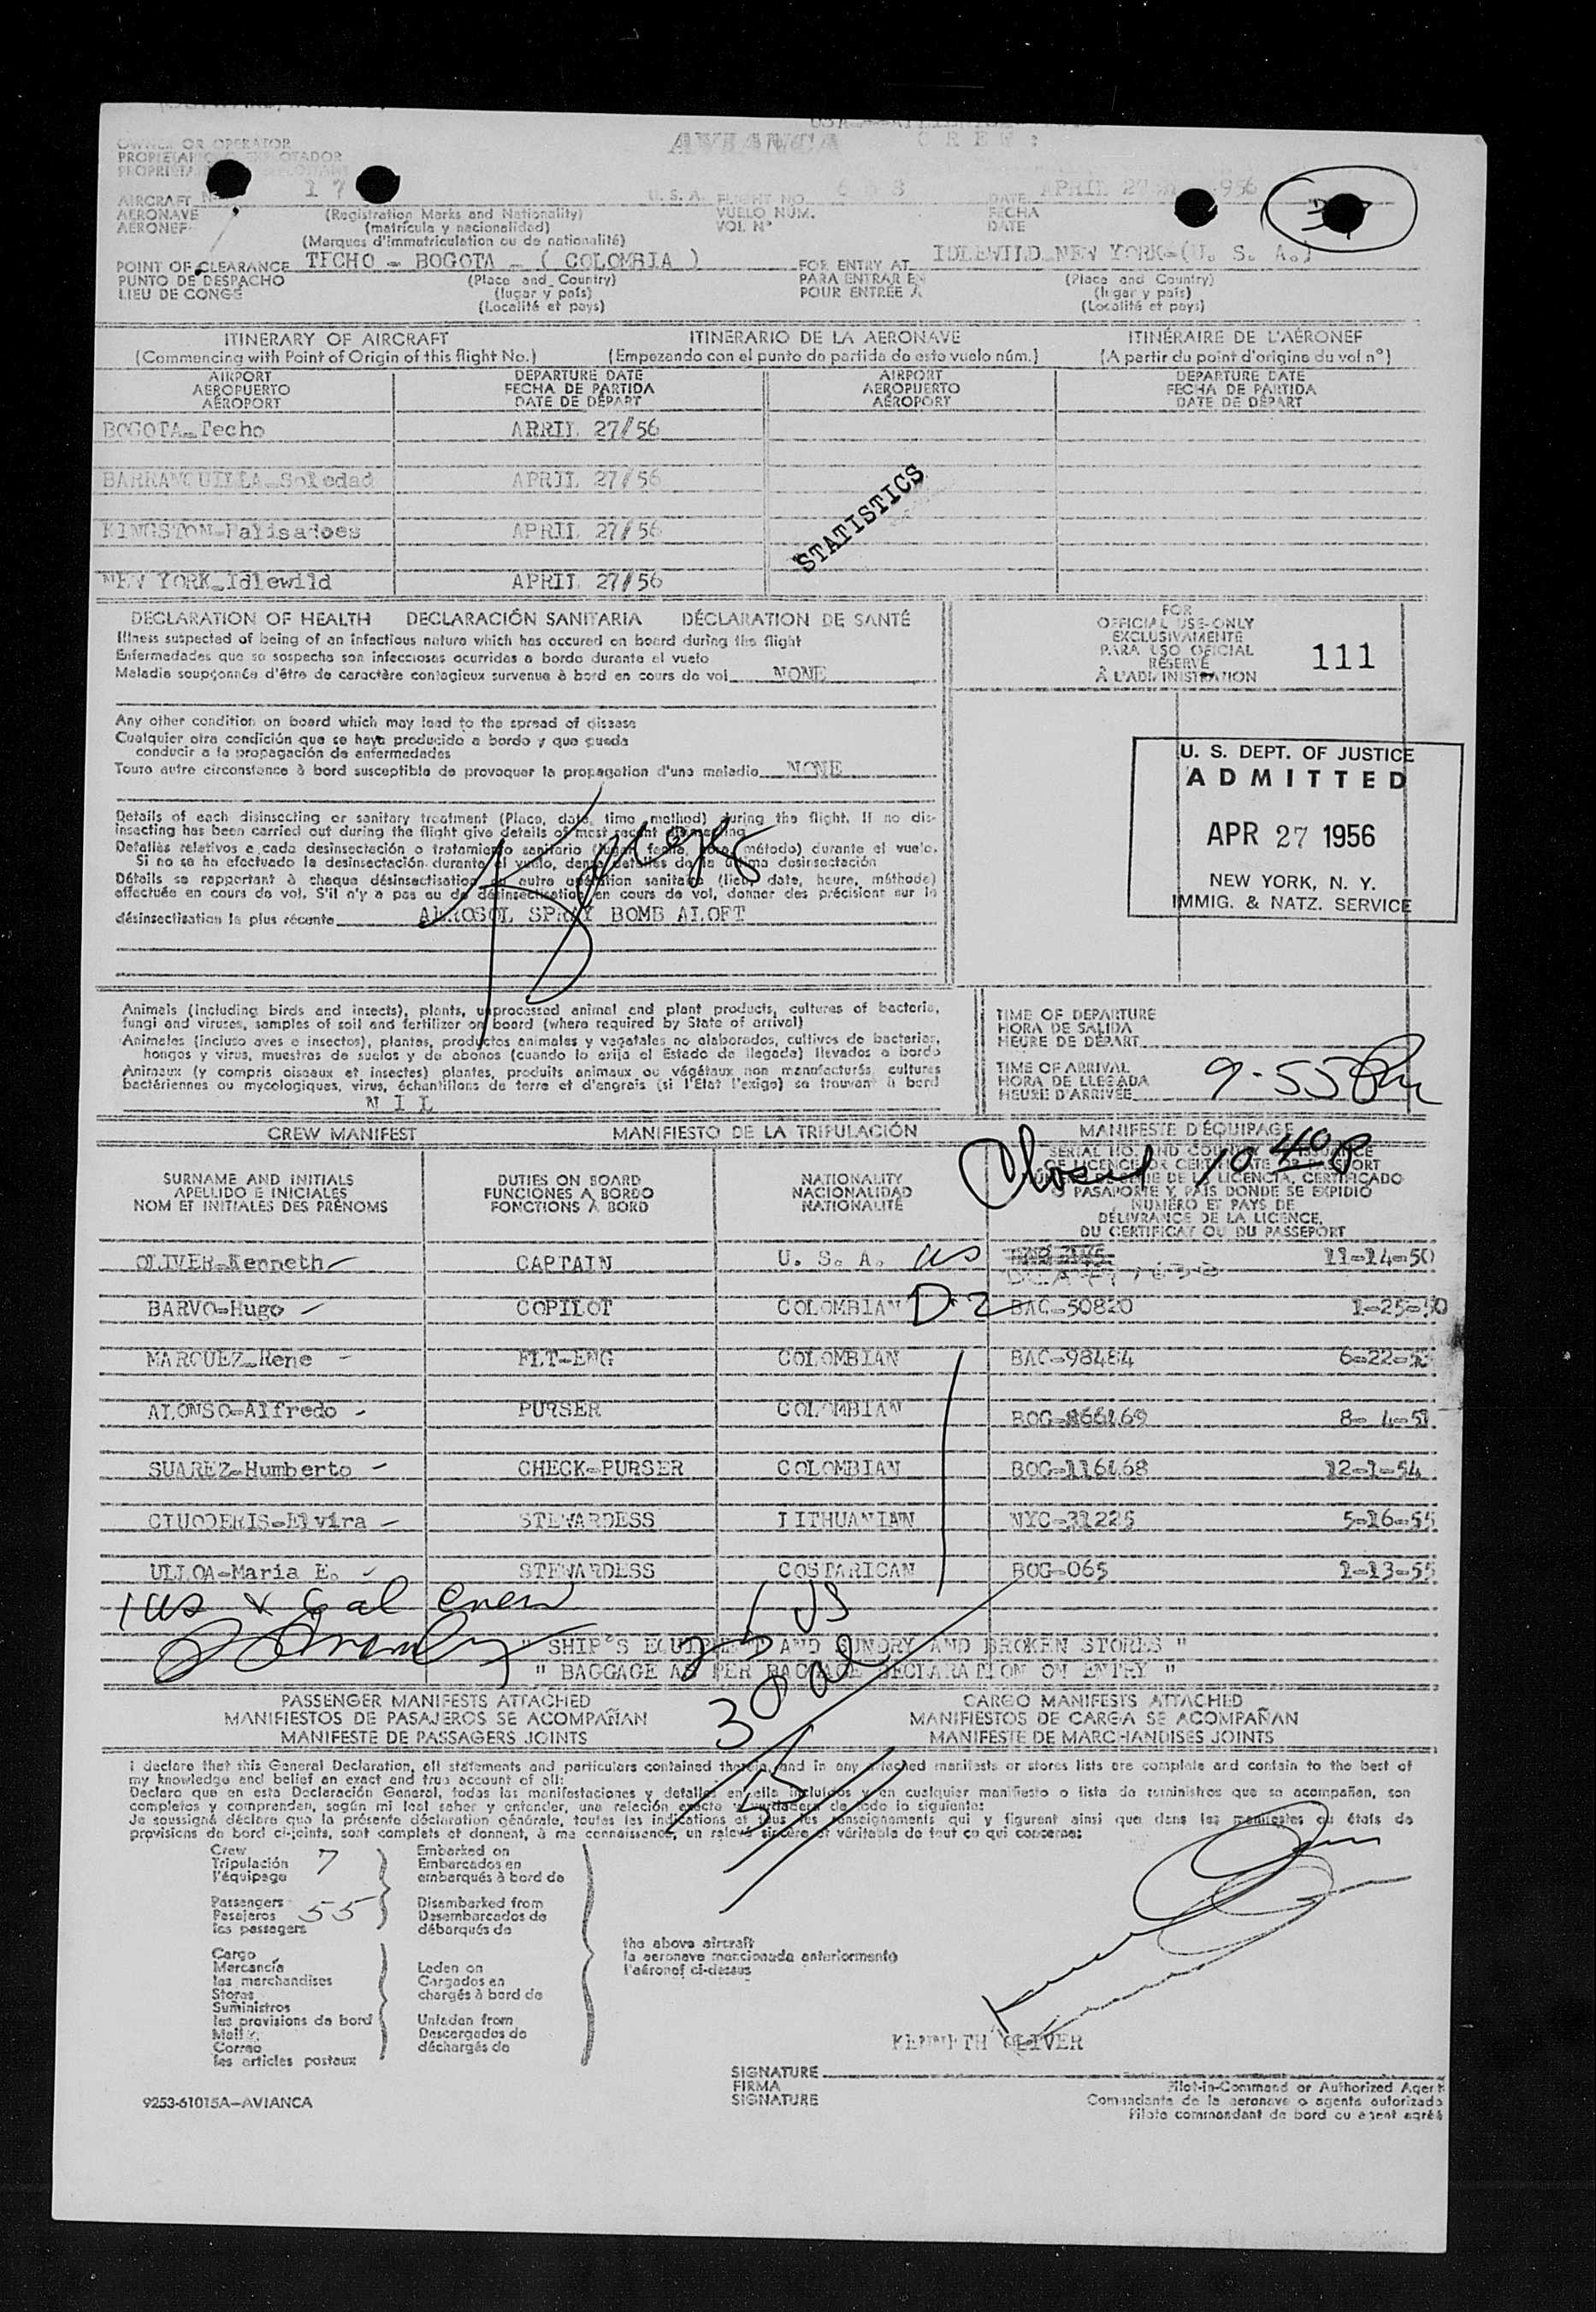 AVIANCA CREW:
OWNER OR OPERATOR
PROPRIETAR
AIRCRAFT 17 U. S. A. FLIGHT NO. DATE APRIL 27 1956
AERONAVE (Registration Marks and Nationality) VUELO NÚM. FECHA
AERONEF (matrícula y nacionalidad) VOL Nº DATE
(Marques d'immatriculation ou de nationalité)
POINT OF CLEARANCE TECHO - BOGOTA - ( COLOMBIA ) FOR ENTRY AT IDLEWILD NEW YORK-(U. S. A.)
PUNTO DE DESPACHO (Place and Country) PARA ENTRAR EN (Place and Country)
LIEU DE CONGÉ (lugar y país) POUR ENTRÉE À (lugar y país)
(Localité et pays) (Localité et pays)
ITINERARY OF AIRCRAFT ITINERARIO DE LA AERONAVE ITINÉRAIRE DE L'AÉRONEF
(Commencing with Point of Origin of this flight No.) (Empezando con el punto de partida de este vuelo núm.) (A partir du point d'origine du vol nº)
AIRPORT DEPARTURE DATE AIRPORT DEPARTURE DATE
AEROPUERTO FECHA DE PARTIDA AEROPUERTO FECHA DE PARTIDA
AÉROPORT DATE DE DÉPART AÉROPORT DATE DE DÉPART
BOGOTA-Techo ARRIL 27/56
BARRANQUILLA-Soledad APRIL 27/56
KINGSTON-Palisadoes APRIL 27/56
NEW YORK-Idlewild APRIL 27/56
STATISTICS
DECLARATION OF HEALTH DECLARACIÓN SANITARIA DÉCLARATION DE SANTÉ
Illness suspected of being of an infectious nature which has occured on board during the flight
Enfermedades que se sospecha son infecciosas ocurridas a bordo durante el vuelo
Maladie soupçonnée d'être de caractère contagieux survenue à bord en cours de vol NONE
FOR
OFFICIAL USE-ONLY
EXCLUSIVAMENTE
PARA USO OFICIAL
RÉSERVÉ
À L'ADMINISTRATION
111
Any other condition on board which may lead to the spread of disease
Cualquier otra condición que se haya producido a bordo y que pueda
conducir a la propagación de enfermedades
Toute autre circonstance à bord susceptible de provoquer la propagation d'une maladie NONE
U. S. DEPT. OF JUSTICE
ADMITTED
APR 27 1956
NEW YORK, N. Y.
IMMIG. & NATZ. SERVICE
Details of each disinsecting or sanitary treatment (Place, date, time, method) during the flight. If no dis-
insecting has been carried out during the flight give details of most recent disinsecting
Detalles relativos a cada desinsectación o tratamiento sanitario (lugar, fecha, hora, método) durante el vuelo.
Si no se ha efectuado la desinsectación durante el vuelo, dense detalles de la última desinsectación
Détails se rapportant à chaque désinsectisation ou autre opération sanitaire (lieu, date, heure, méthode)
effectuée en cours de vol. S'il n'y a pas eu de désinsectisation en cours de vol, donner des précisions sur la
désinsectisation la plus récente AEROSOL SPRAY BOMB ALOFT
Animals (including birds and insects), plants, unprocessed animal and plant products, cultures of bacteria,
fungi and viruses, samples of soil and fertilizer on board (where required by State of arrival)
Animales (incluso aves e insectos), plantas, productos animales y vegetales no elaborados, cultivos de bacterias,
hongos y virus, muestras de suelos y de abonos (cuando lo exija el Estado de llegada) llevados a bordo
Animaux (y compris oiseaux et insectes) plantes, produits animaux ou végétaux non manufacturés, cultures
bactériennes ou mycologiques, virus, échantillons de terre et d'engrais (si l'État l'exige) se trouvant à bord
NIL
TIME OF DEPARTURE
HORA DE SALIDA
HEURE DE DÉPART
TIME OF ARRIVAL
HORA DE LLEGADA
HEURE D'ARRIVÉE 9-55 Pm
CREW MANIFEST MANIFIESTO DE LA TRIPULACIÓN MANIFESTE D'ÉQUIPAGE
Closed 10 40 P
SURNAME AND INITIALS DUTIES ON BOARD NATIONALITY
APELLIDO E INICIALES FUNCIONES A BORDO NACIONALIDAD
NOM ET INITIALES DES PRÉNOMS FONCTIONS À BORD NATIONALITÉ
SERIAL NO. AND COUNTRY OF ISSUANCE
OF LICENCE OR CERTIFICATE OR PASSPORT
NÚMERO DE SERIE DE LA LICENCIA, CERTIFICADO
O PASAPORTE Y PAÍS DONDE SE EXPIDIÓ
NUMÉRO ET PAYS DE
DÉLIVRANCE DE LA LICENCE,
DU CERTIFICAT OU DU PASSEPORT
OLIVER-Kenneth CAPTAIN U. S. A. US 11-14-50
BARVO-Hugo COPILOT COLOMBIAN D-2 BAC-50820 1-25-50
MARQUEZ-Rene FLT-ENG COLOMBIAN BAC-98484 6-22-
ALONSO-Alfredo PURSER COLOMBIAN BOG- 8- 4-51
SUAREZ-Humberto CHECK-PURSER COLOMBIAN BOG-116168 12-1-54
CIUODERIS-Elvira STEWARDESS LITHUANIAN NYC-31225 5-16-55
ULLOA-Maria E. STEWARDESS COSTARICAN BOG-065 1-13-55
1 US & 6 al crew
25 US
" SHIP'S EQUIPMENT AND SUNDRY AND BROKEN STORES "
" BAGGAGE AS PER BAGGAGE DECLARATION ON ENTRY "
30 al
55
PASSENGER MANIFESTS ATTACHED CARGO MANIFESTS ATTACHED
MANIFIESTOS DE PASAJEROS SE ACOMPAÑAN MANIFIESTOS DE CARGA SE ACOMPAÑAN
MANIFESTE DE PASSAGERS JOINTS MANIFESTE DE MARCHANDISES JOINTS
I declare that this General Declaration, all statements and particulars contained therein, and in any attached manifests or stores lists are complete and contain to the best of
my knowledge and belief an exact and true account of all:
Declaro que en esta Declaración General, todas las manifestaciones y detalles en ella incluídos y en cualquier manifiesto o lista de suministros que se acompañan, son
completos y comprenden, según mi leal saber y entender, una relación exacta y verdadera de todo lo siguiente:
Je soussigné déclare que la présente déclaration générale, toutes les indications et tous les renseignements qui y figurent ainsi que dans les manifestes ou états de
provisions de bord ci-joints, sont complets et donnent, à ma connaissance, un relevé sincère et véritable de tout ce qui concerne:
Crew Embarked on
Tripulación 7 Embarcados en
l'équipage embarqués à bord de
Passengers Disembarked from
Pasajeros 55 Desembarcados de
les passagers débarqués de
the above aircraft
la aeronave mencionada anteriormente
l'aéronef ci-dessus
Cargo
Mercancía Laden on
les marchandises Cargados en
Stores chargés à bord de
Suministros
les provisions de bord Unladen from
Mail Descargados de
Correo déchargés de
les articles postaux
KENNETH OLIVER
SIGNATURE
FIRMA Pilot-in-Command or Authorized Agent
SIGNATURE Comandante de la aeronave o agente autorizado
Pilote commandant de bord ou agent agréé
9253-61015A-AVIANCA